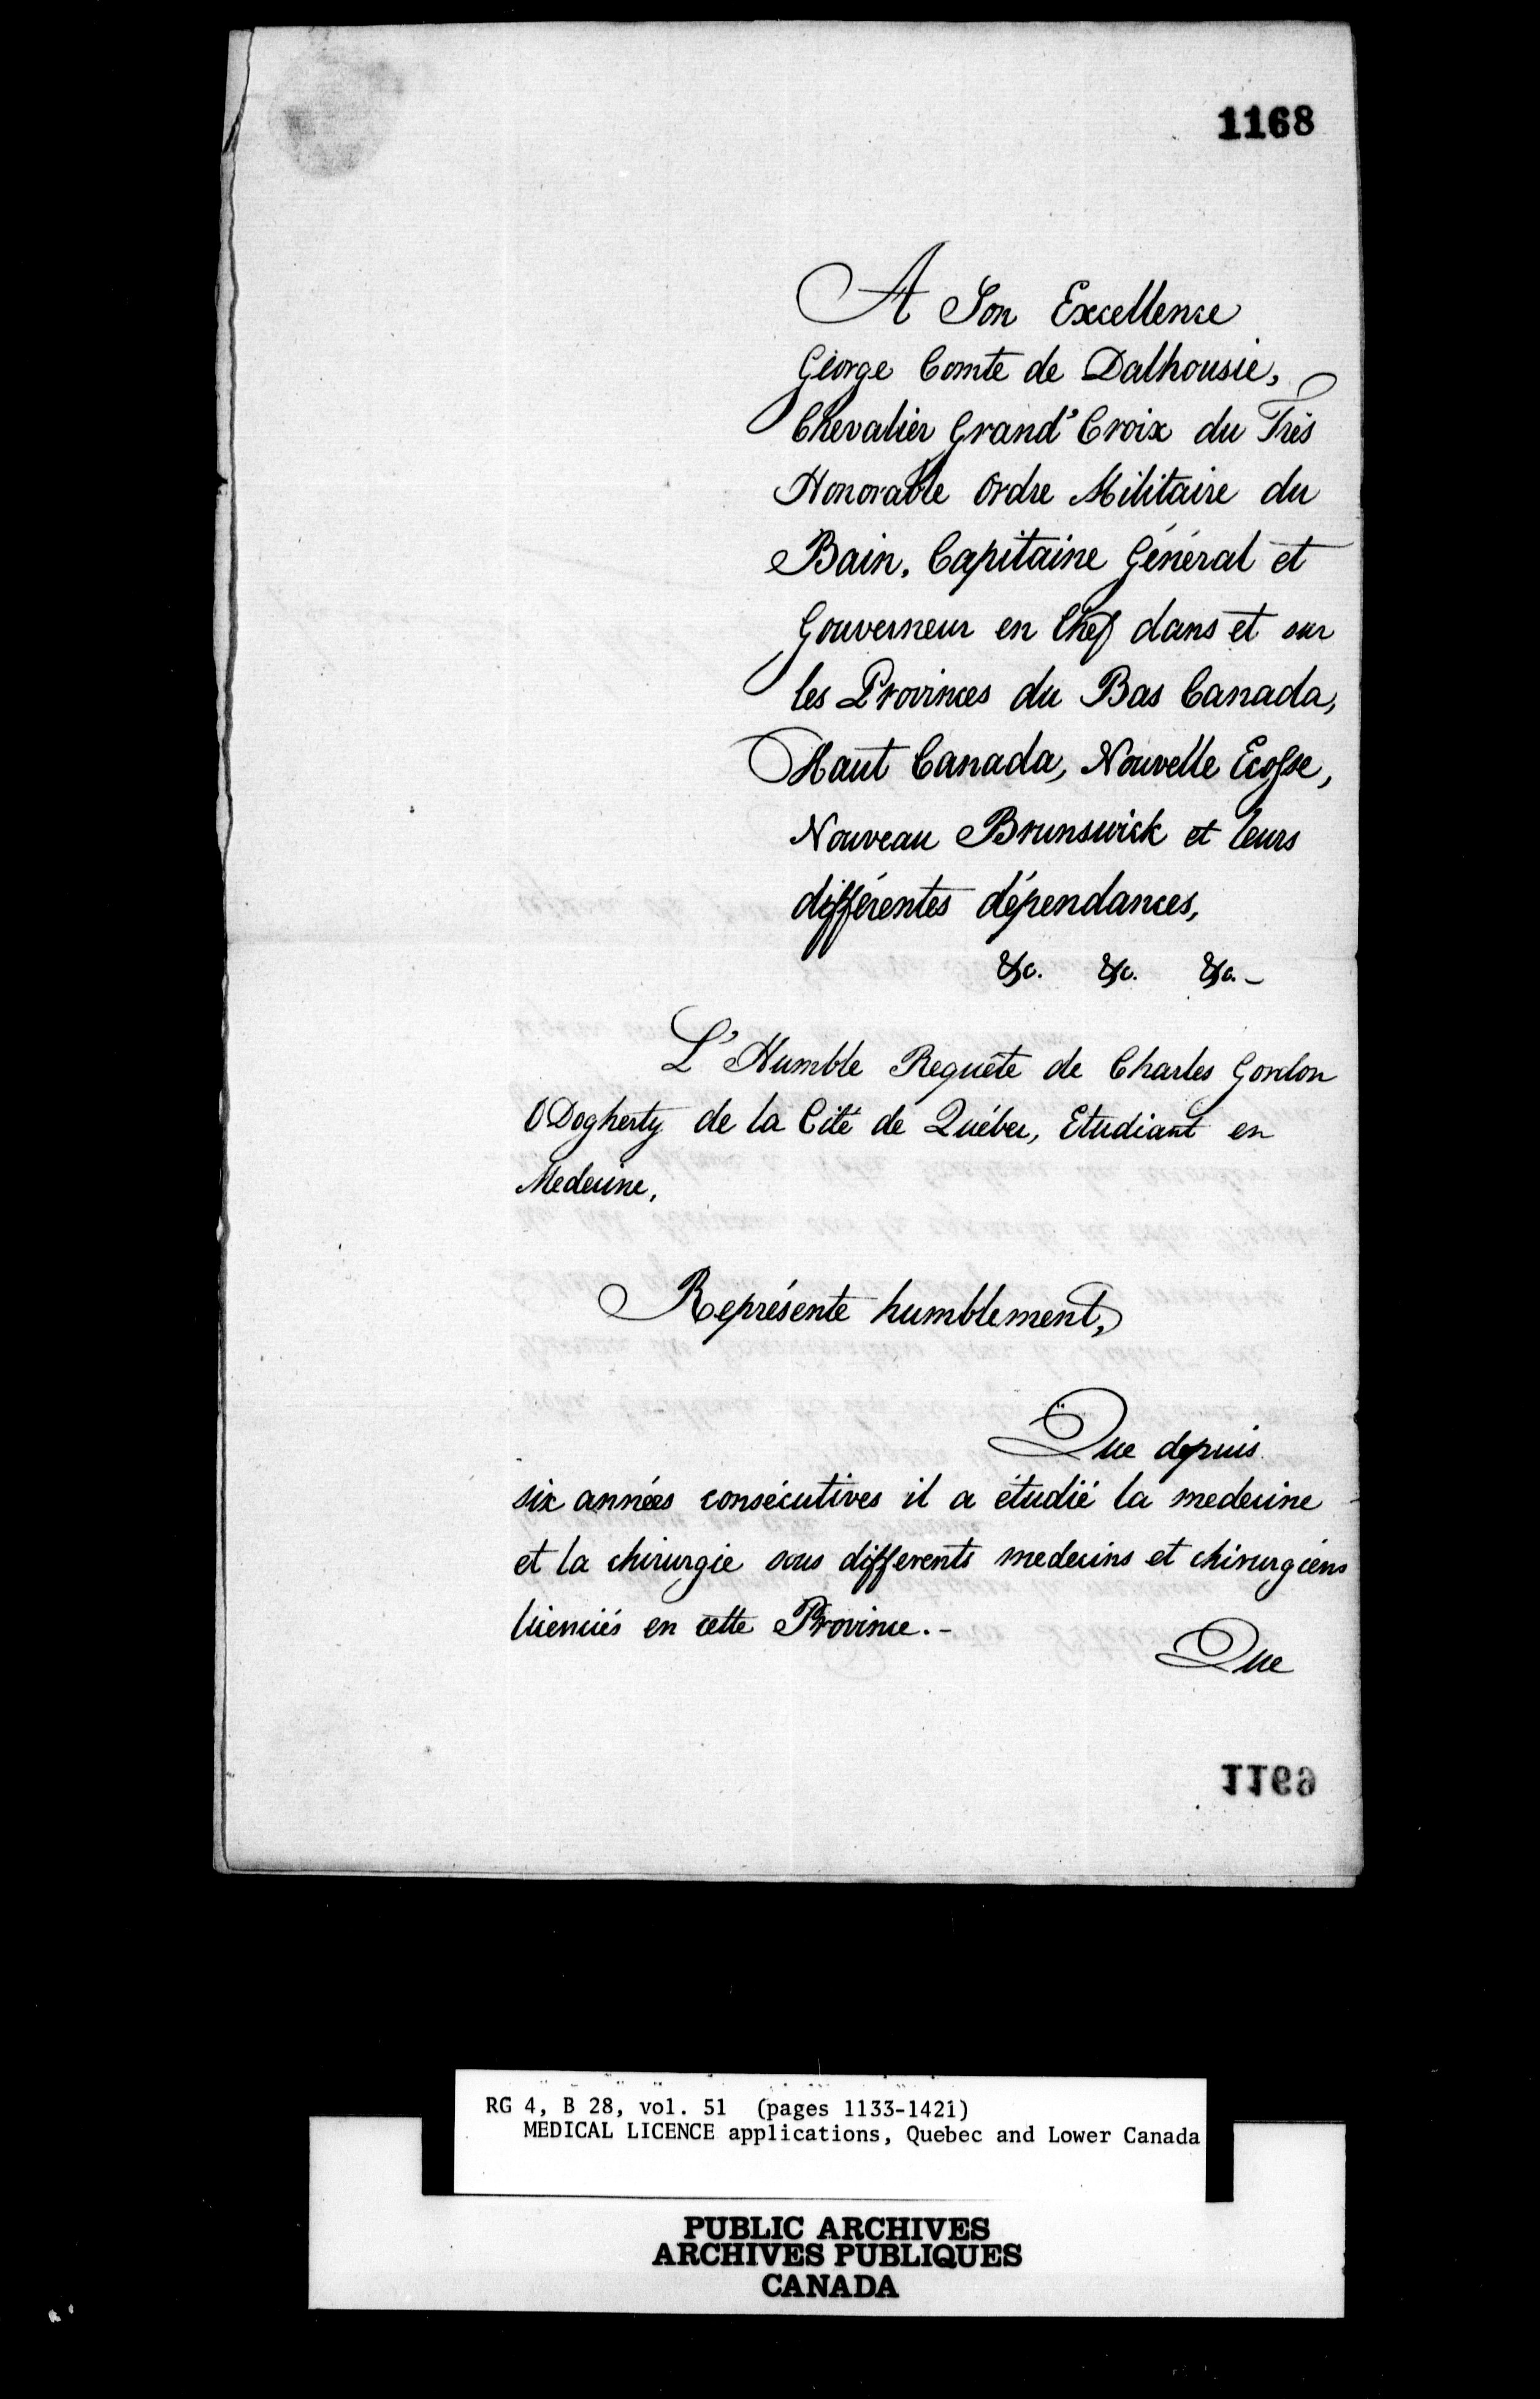 1168
A Son Excellence
George Comte de Dalhousie,
Chevalier Grand' Croix du Très
Honorable Ordre Militaire du
Bain, Capitaine Général et
Gouverneur en Chef dans et sur
les Provinces du Bas Canada,
Haut Canada, Nouvelle Ecosse,
Nouveau Brunswick et leurs
différentes dépendances,
&c. &c. &c. -
L'Humble Requête de Charles Gordon
O'Dogherty de la Cité de Québec, Etudiant en
Medecine,
Représente humblement,
Que depuis
six années consécutives il a étudié la medecine
et la chirurgie sous differents medecins et chirurgiens
licenciés en cette Province. -
Que
1169
RG 4, B 28, vol. 51 (pages 1133-1421)
MEDICAL LICENCE applications, Quebec and Lower Canada
PUBLIC ARCHIVES
ARCHIVES PUBLIQUES
CANADA